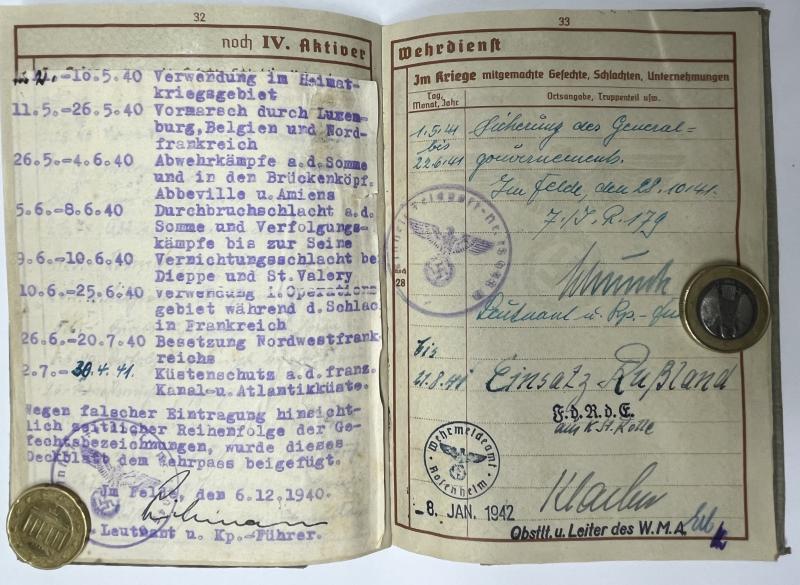 32
noch IV. Aktiver
-10.5.40 Verwendung im Heimat-
kriegsgebiet
11.5.-26.5.40 Vormarsch durch Luxem-
burg, Belgien und Nord-
frankreich
26.5.-4.6.40 Abwehrkämpfe a.d.Somme
und in den Brückenköpf.
Abbeville u.Amiens
5.6.-8.6.40 Durchbruchschlacht a.d.
Somme und Verfolgungs-
kämpfe bis zur Seine
9.6.-10.6.40 Vernichtungsschlacht be
Dieppe und St.Valery
10.6.-25.6.40 Verwendung i.Operations
gebiet während d.Schlac
in Frankreich
26.6.-20.7.40 Besetzung Nordwestfrank
reichs
2.7.-30.4.41. Küstenschutz a.d.franz.
Kanal-u.Atlantikküste.
Wegen falscher Eintragung hinsicht-
lich zeitlicher Reihenfolge der Ge-
fechtsbezeichnungen, wurde dieses
Deckblatt dem Wehrpass beigefügt.
Im Felde, den 6.12.1940.
Leutnant u. Kp.-Führer.
33
Wehrdienst
Im Kriege mitgemachte Gefechte, Schlachten, Unternehmungen
Tag, Monat, Jahr
Ortsangabe, Truppenteil usw.
1.5.41 Sicherung des General-
bis gouvernements.
22.6.41
Im Felde, den 28.10.41.
7./J.R.179
28
Leutnant u. Kp.-
bis
21.8.41 Einsatz-Rußland
F.d.R.d.E.
Wehrmeldeamt
Rosenheim
-8. JAN. 1942
Obstlt. u. Leiter des W.M.A.